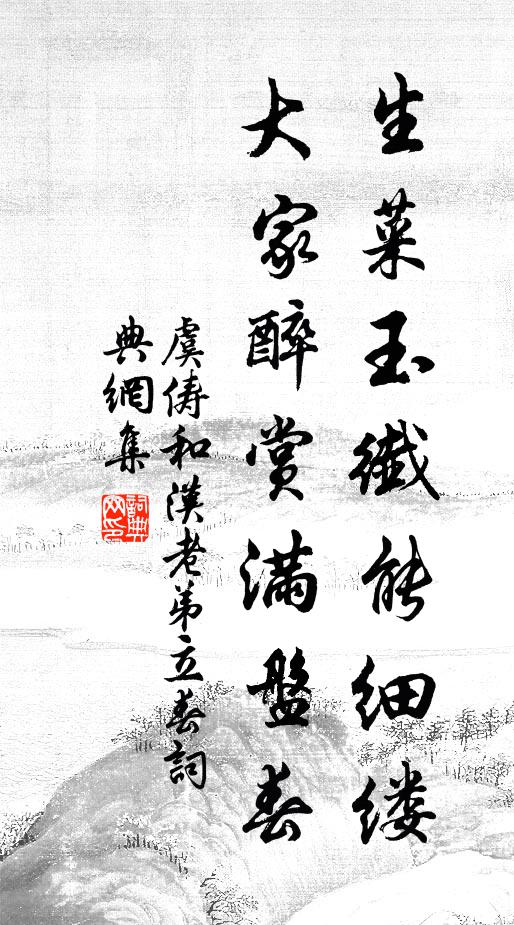 生菜玉纖能細縷
大家醉賞滿盤春
虞儔和漢老弟立春詞
典網集
詞典網印